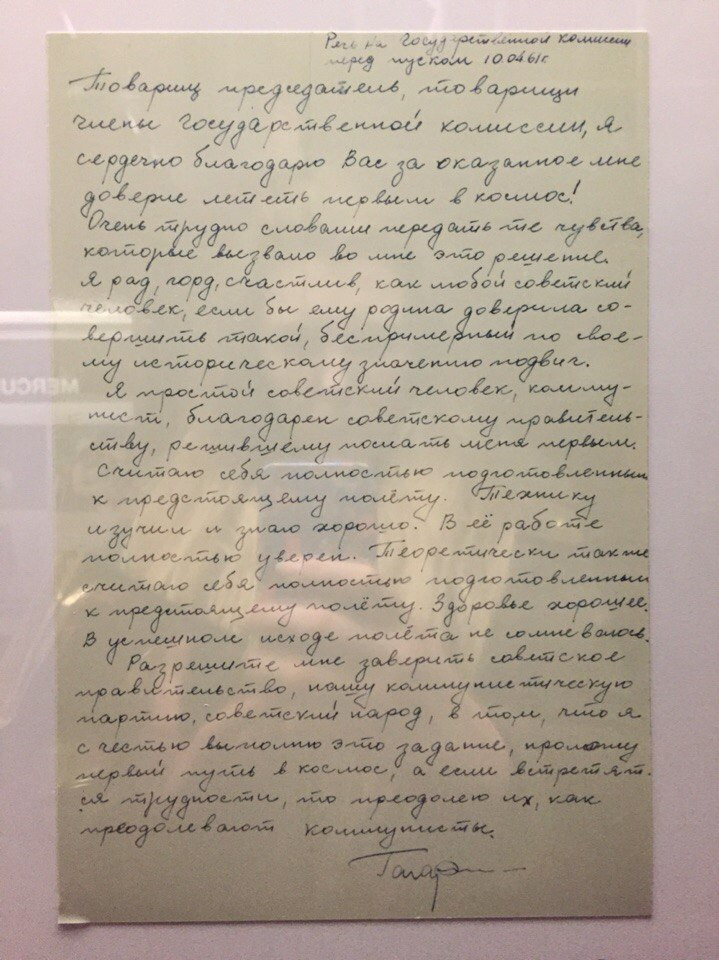 Речь на Государственной комиссии
перед пуском 10.04.61г.
Товарищ председатель, товарищи
члены Государственной комиссии, я
сердечно благодарю Вас за оказанное мне
доверие лететь первым в космос!
Очень трудно словами передать те чувства,
которые вызвало во мне это решение.
Я рад, горд, счастлив, как любой советский
человек, если бы ему родина доверила со-
вершить такой, беспримерный по свое-
му историческому значению подвиг.
Я простой советский человек, комму-
нист, благодарен советскому правитель-
ству, решившему послать меня первым.
Считаю себя полностью подготовленным
к предстоящему полёту. Технику
изучил и знаю хорошо. В её работе
полностью уверен. Теоретически также
считаю себя полностью подготовленным
к предстоящему полёту. Здоровье хорошее.
В успешном исходе полёта не сомневаюсь.
Разрешите мне заверить советское
правительство, нашу коммунистическую
партию, советский народ, в том, что я
с честью выполню это задание, проложу
первый путь в космос, а если встретят-
ся трудности, то преодолею их, как
преодолевают коммунисты.
Гагарин
MERCU